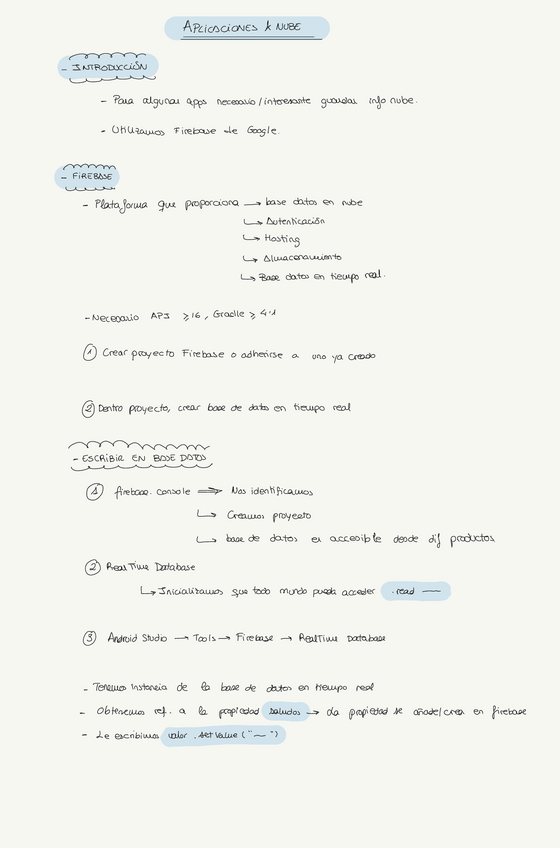 APLICACIONES & NUBE
- INTRODUCCIÓN
- Para algunas apps necesario/interesante guardar info nube.
- Utilizamos Firebase de Google.
- FIREBASE
- Plataforma que proporciona → base datos en nube
↳ Autenticación
↳ Hosting
↳ Almacenamiento
↳ Base datos en tiempo real.
- Necesario API ≥16, Gradle ≥ 4.1
① Crear proyecto Firebase o adherirse a uno ya creado
② Dentro proyecto, crear base de datos en tiempo real
- ESCRIBIR EN BASE DATOS
① firebase.console ⟹ Nos identificamos
↳ Creamos proyecto
↳ base de datos es accesible desde dif productos
② RealTime Database
↳ Inicializamos que todo mundo pueda acceder .read —
③ Android Studio → Tools → Firebase → RealTime Database
- Tenemos instancia de la base de datos en tiempo real
- Obtenemos ref. a la propiedad saludos → La propiedad se añade/crea en firebase
- Le escribimos valor .setValue ("—")